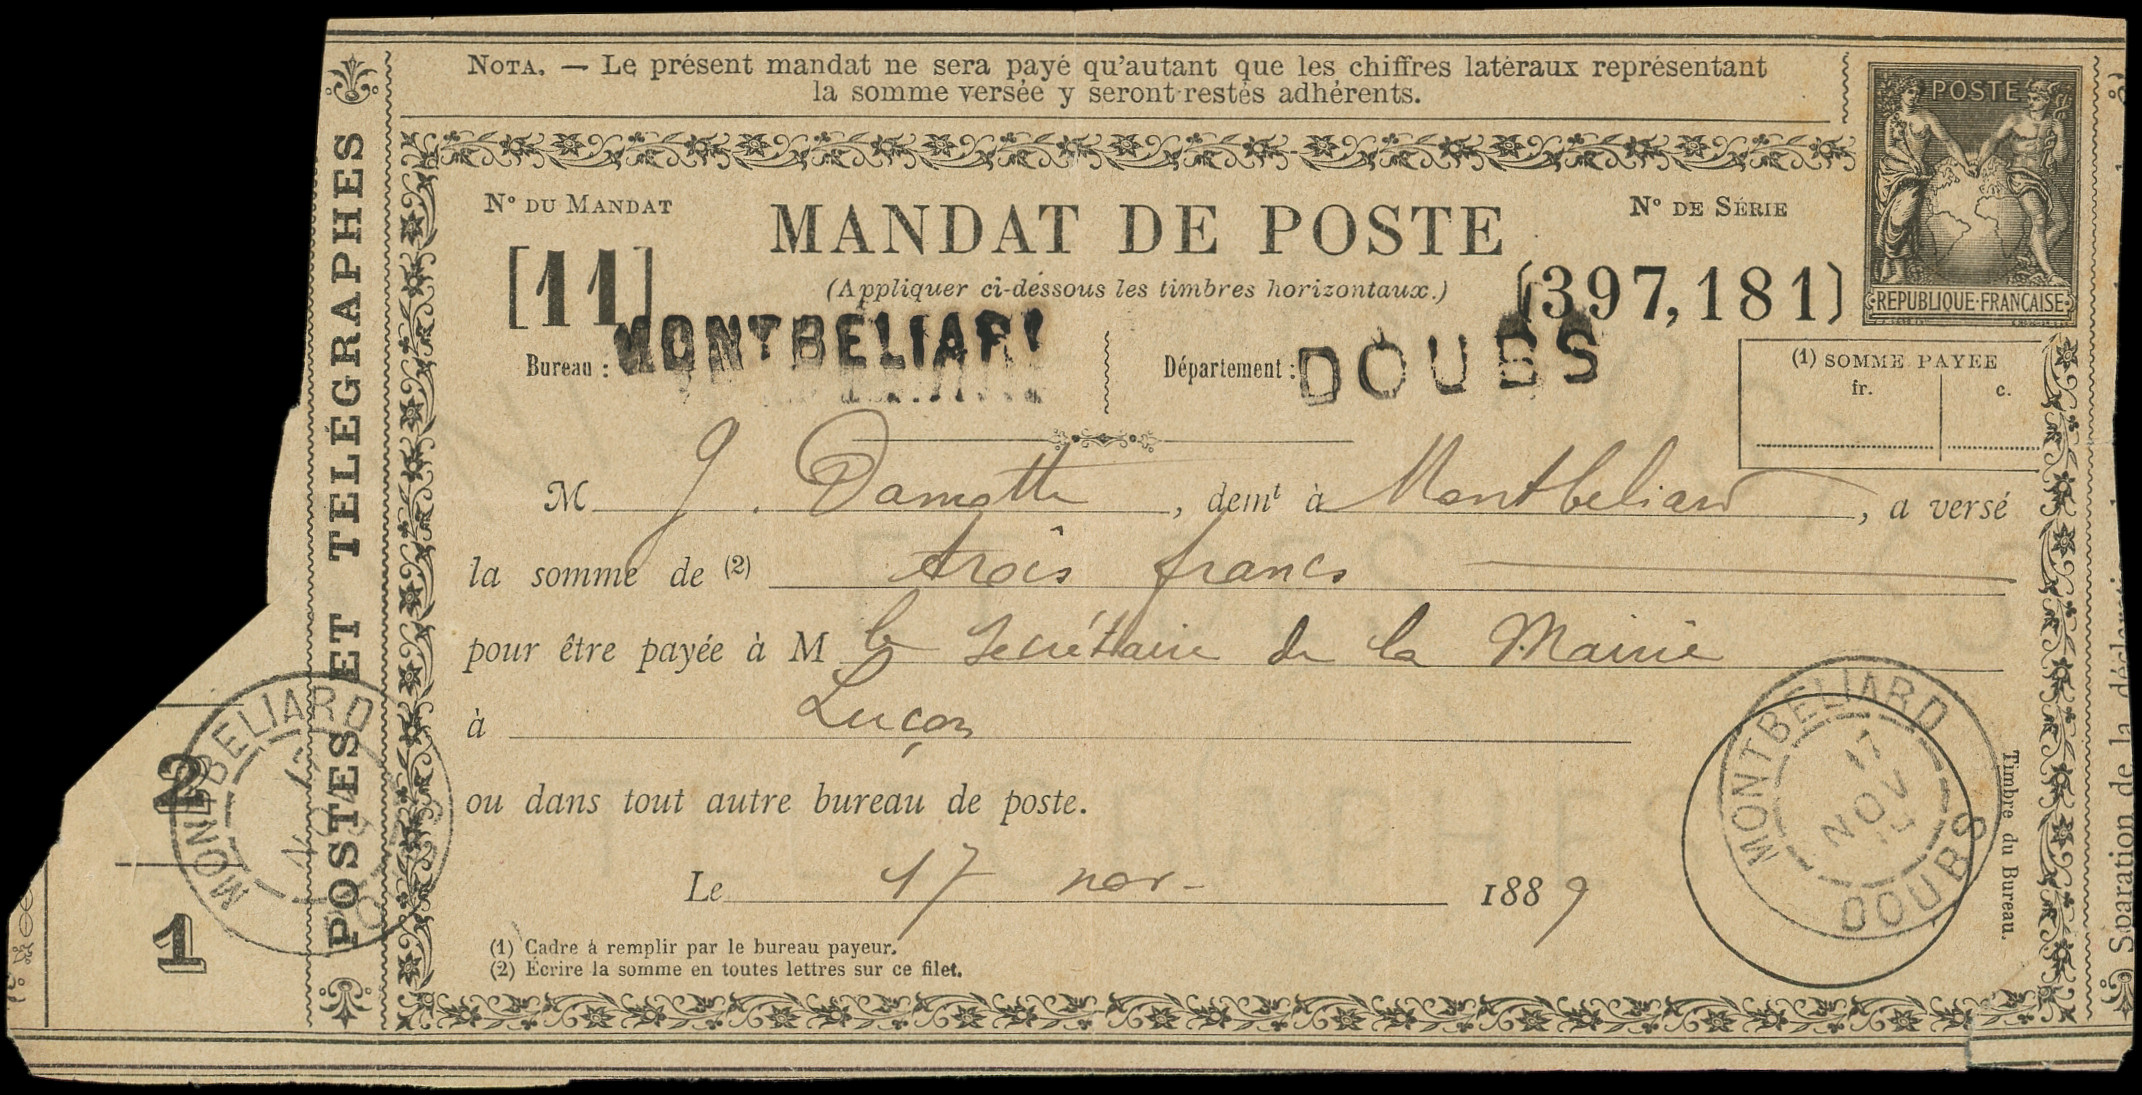 NOTA. — Le présent mandat ne sera payé qu'autant que les chiffres latéraux représentant
la somme versée y seront restés adhérents.
POSTE
REPUBLIQUE FRANÇAISE
POSTES ET TELÉGRAPHES
N° DU MANDAT
MANDAT DE POSTE
N° DE SÉRIE
[11]
(Appliquer ci-dessous les timbres horizontaux.)
(397,181)
Bureau : MONTBELIARD
Département : DOUBS
(1) SOMME PAYEE
fr. c.
M J. Damotte, demt à Montbeliard, a versé
la somme de (2) trois francs
pour être payée à M le Secrétaire de la Mairie
à Luçon
ou dans tout autre bureau de poste.
Le 17 nov- 1889
(1) Cadre à remplir par le bureau payeur.
(2) Écrire la somme en toutes lettres sur ce filet.
2
1
MONTBELIARD
MONTBELIARD
17
NOV
DOUBS
Timbre du Bureau.
Séparation de la